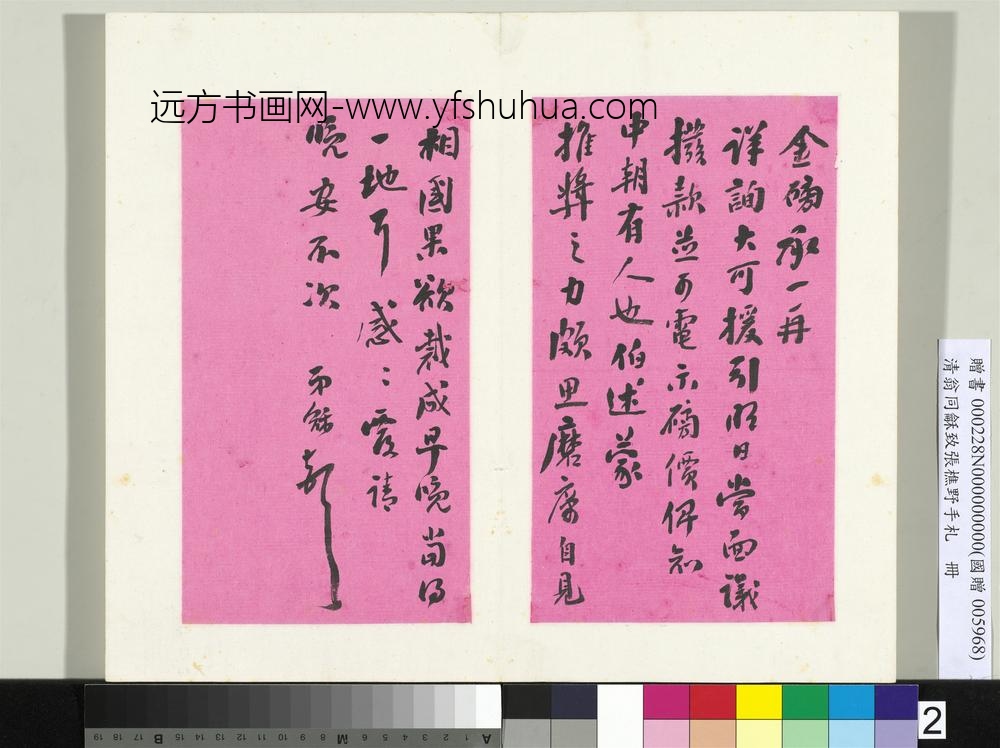 远方书画网-www.yfshuhua.com
金磅承一再
詳詢大可援引明日當面議
撥款並可電示磅價俾知
中朝有人也伯述蒙
推獎之力頗思磨厲自見
相國果欲裁成早晚當得
一地耳感:覆請
晚安不次 弟龢頓
贈書 000228N000000000(國贈 005968)
清翁同龢致張樵野手札 冊
19 18 17 16 15 14 13 12 11 10 9 8 7 6 5 4 3 2 1
B M A
2